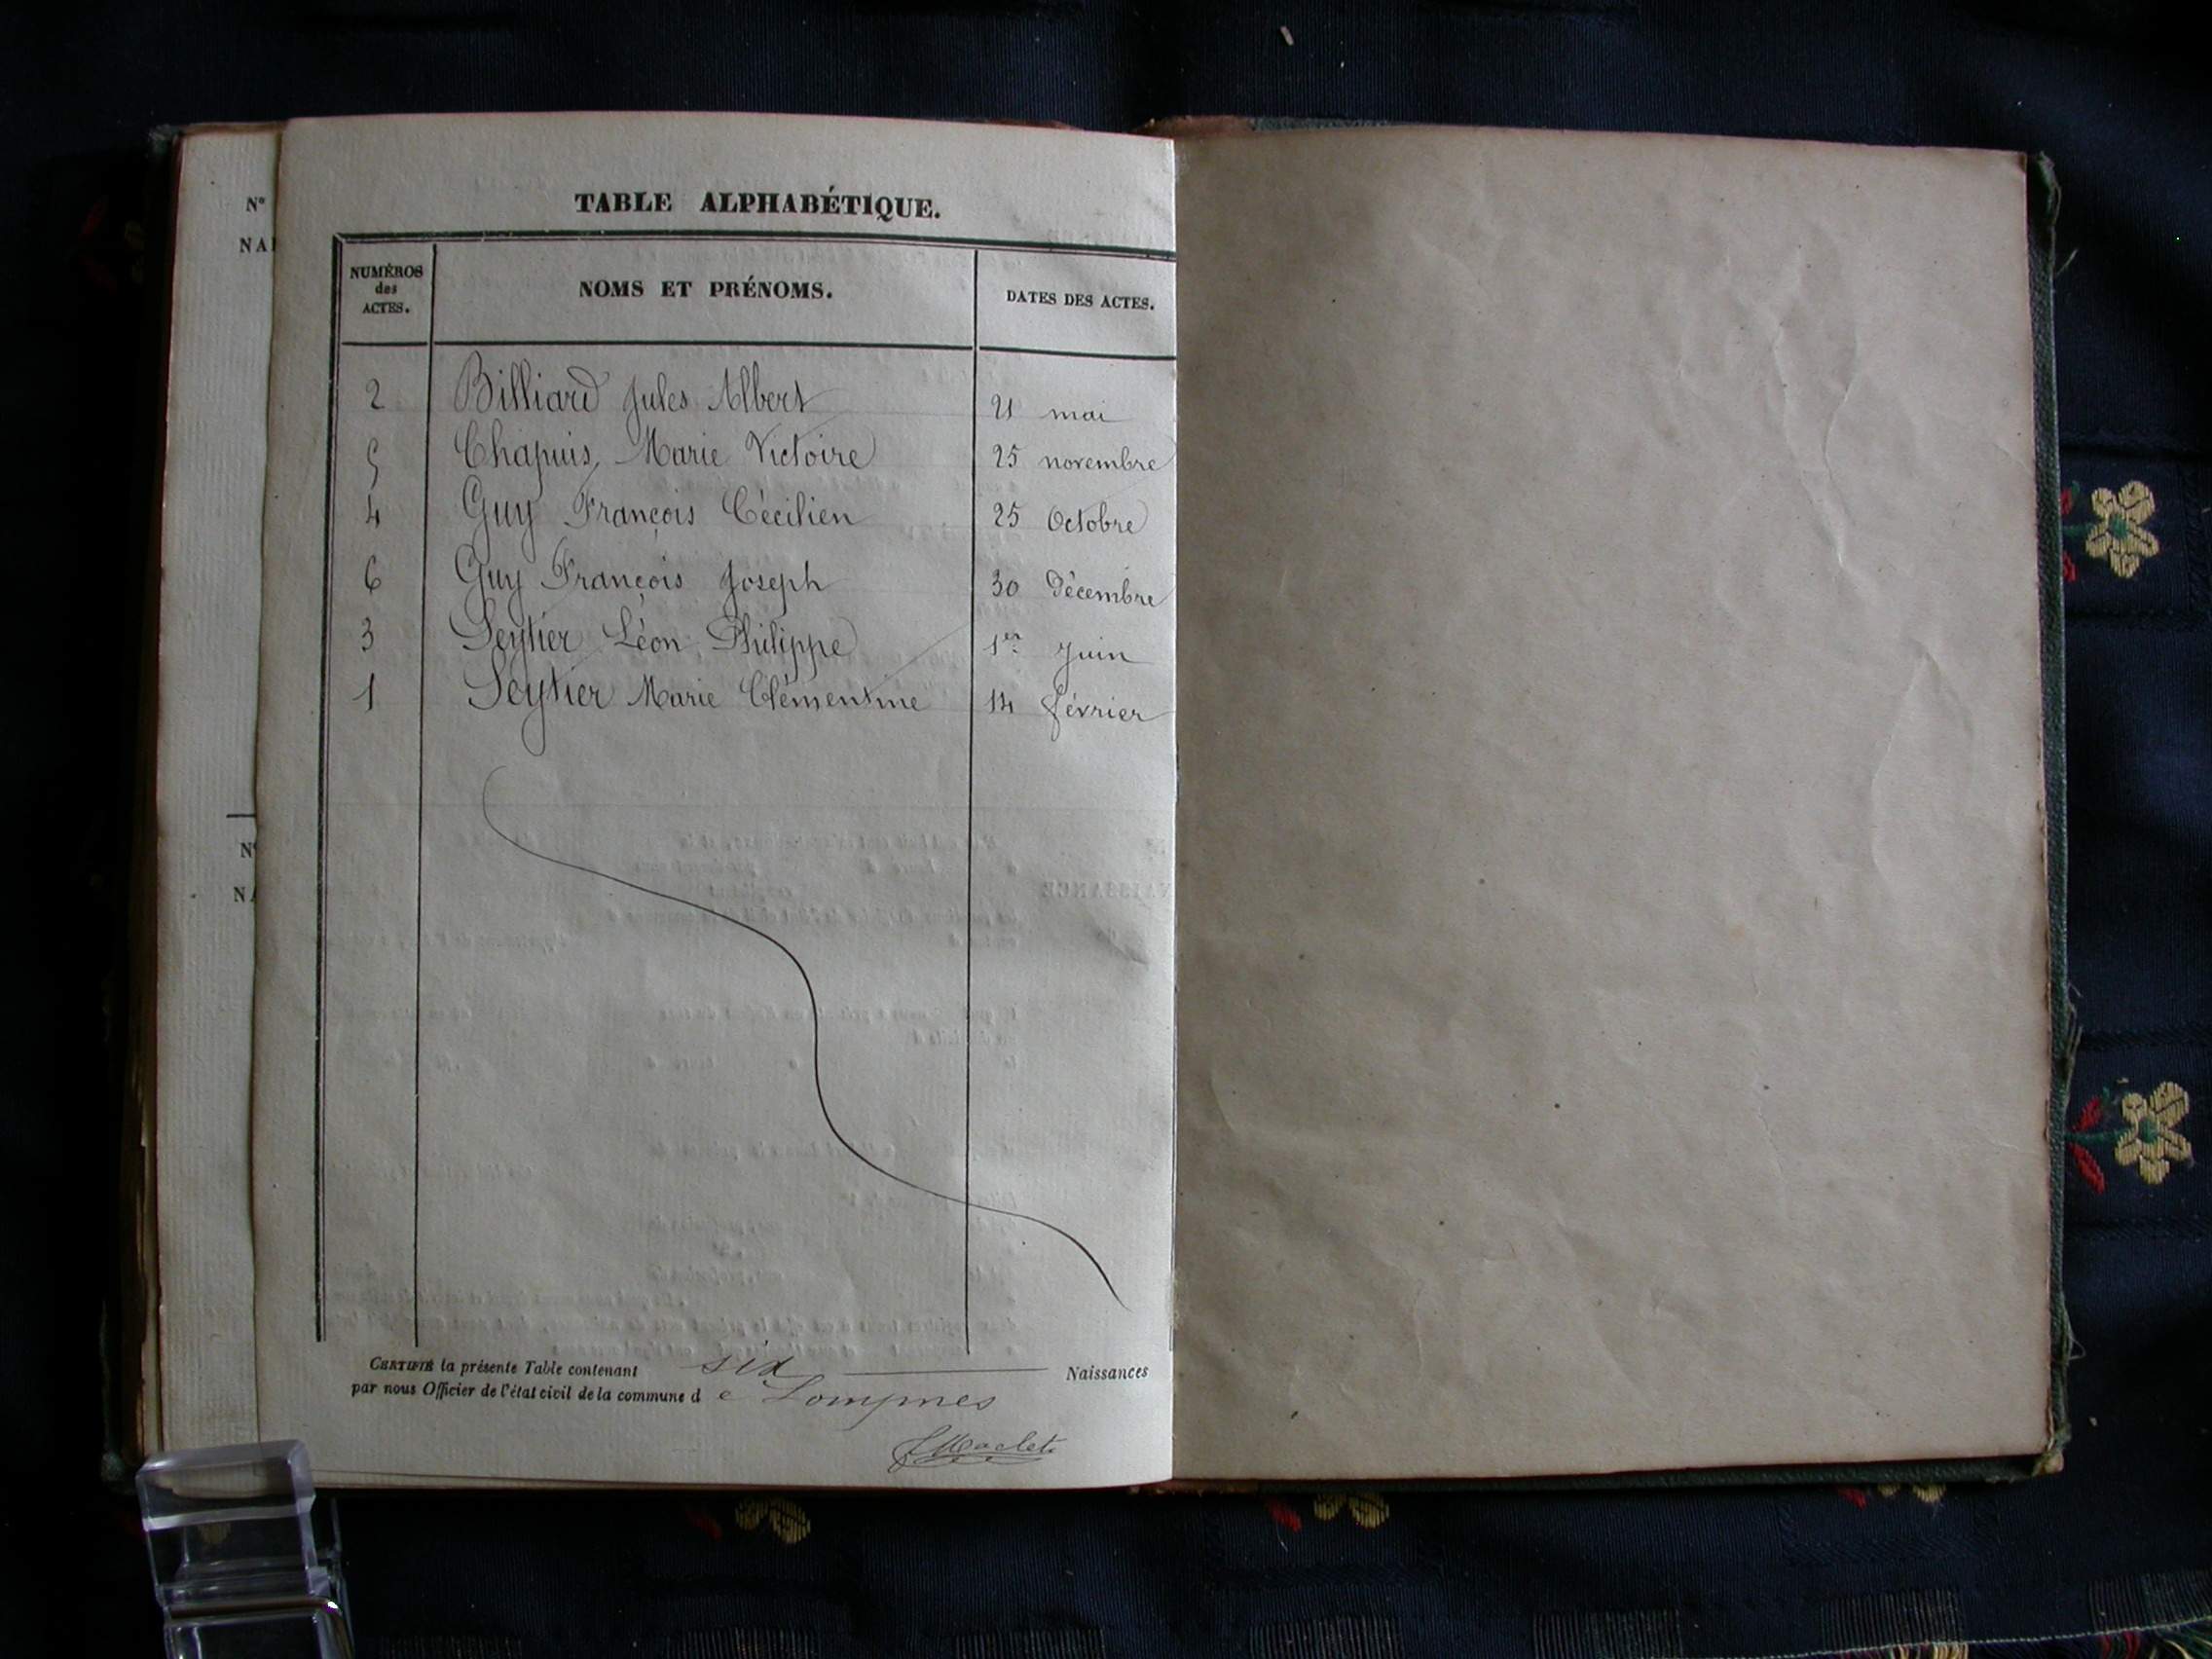 TABLE ALPHABÉTIQUE.
NUMÉROS des ACTES. NOMS ET PRÉNOMS. DATES DES ACTES.
2 Billiard Jules Albert 21 mai
5 Chapuis, Marie Victoire 25 novembre
4 Guy François Cécilien 25 Octobre
6 Guy François Joseph 30 Décembre
3 Seytier Léon Philippe 1er juin
1 Seytier Marie Clémentine 14 février
CERTIFIÉ la présente Table contenant six Naissances
par nous Officier de l'état civil de la commune de Lompnes
Nº
NAI
Nº
NA